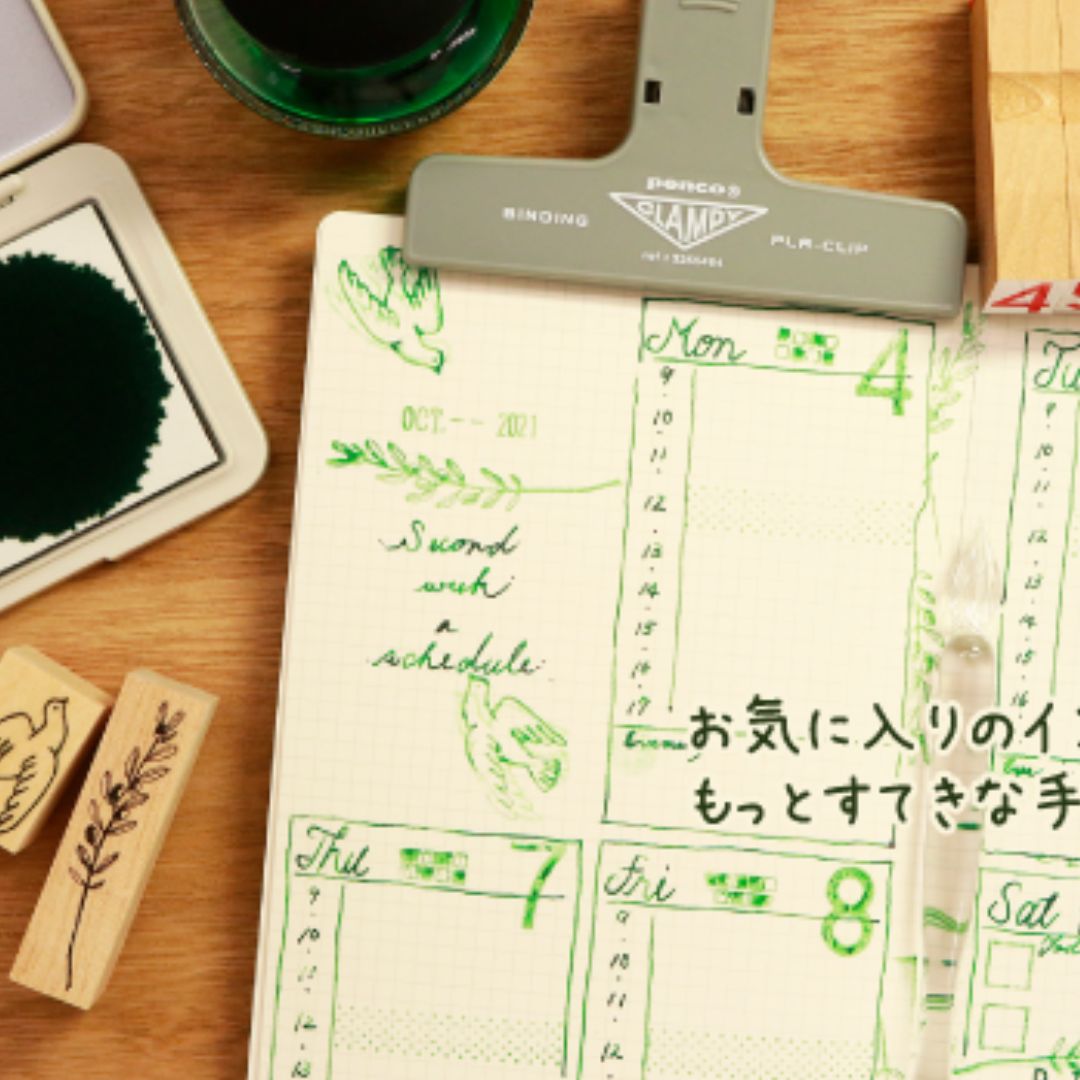 penco®
BINDING
CLAMPY
PLA-CLIP
OCT. -- 2021
Second
week
a
schedule.
Mon
4
9
10
11
12
13
14
15
16
17
Tu
9
10
11
12
13
14
15
16
お気に入りのイ
もっとすてきな手
Thu
7
9
10
11
12
13
Fri
8
9
10
11
12
Sat